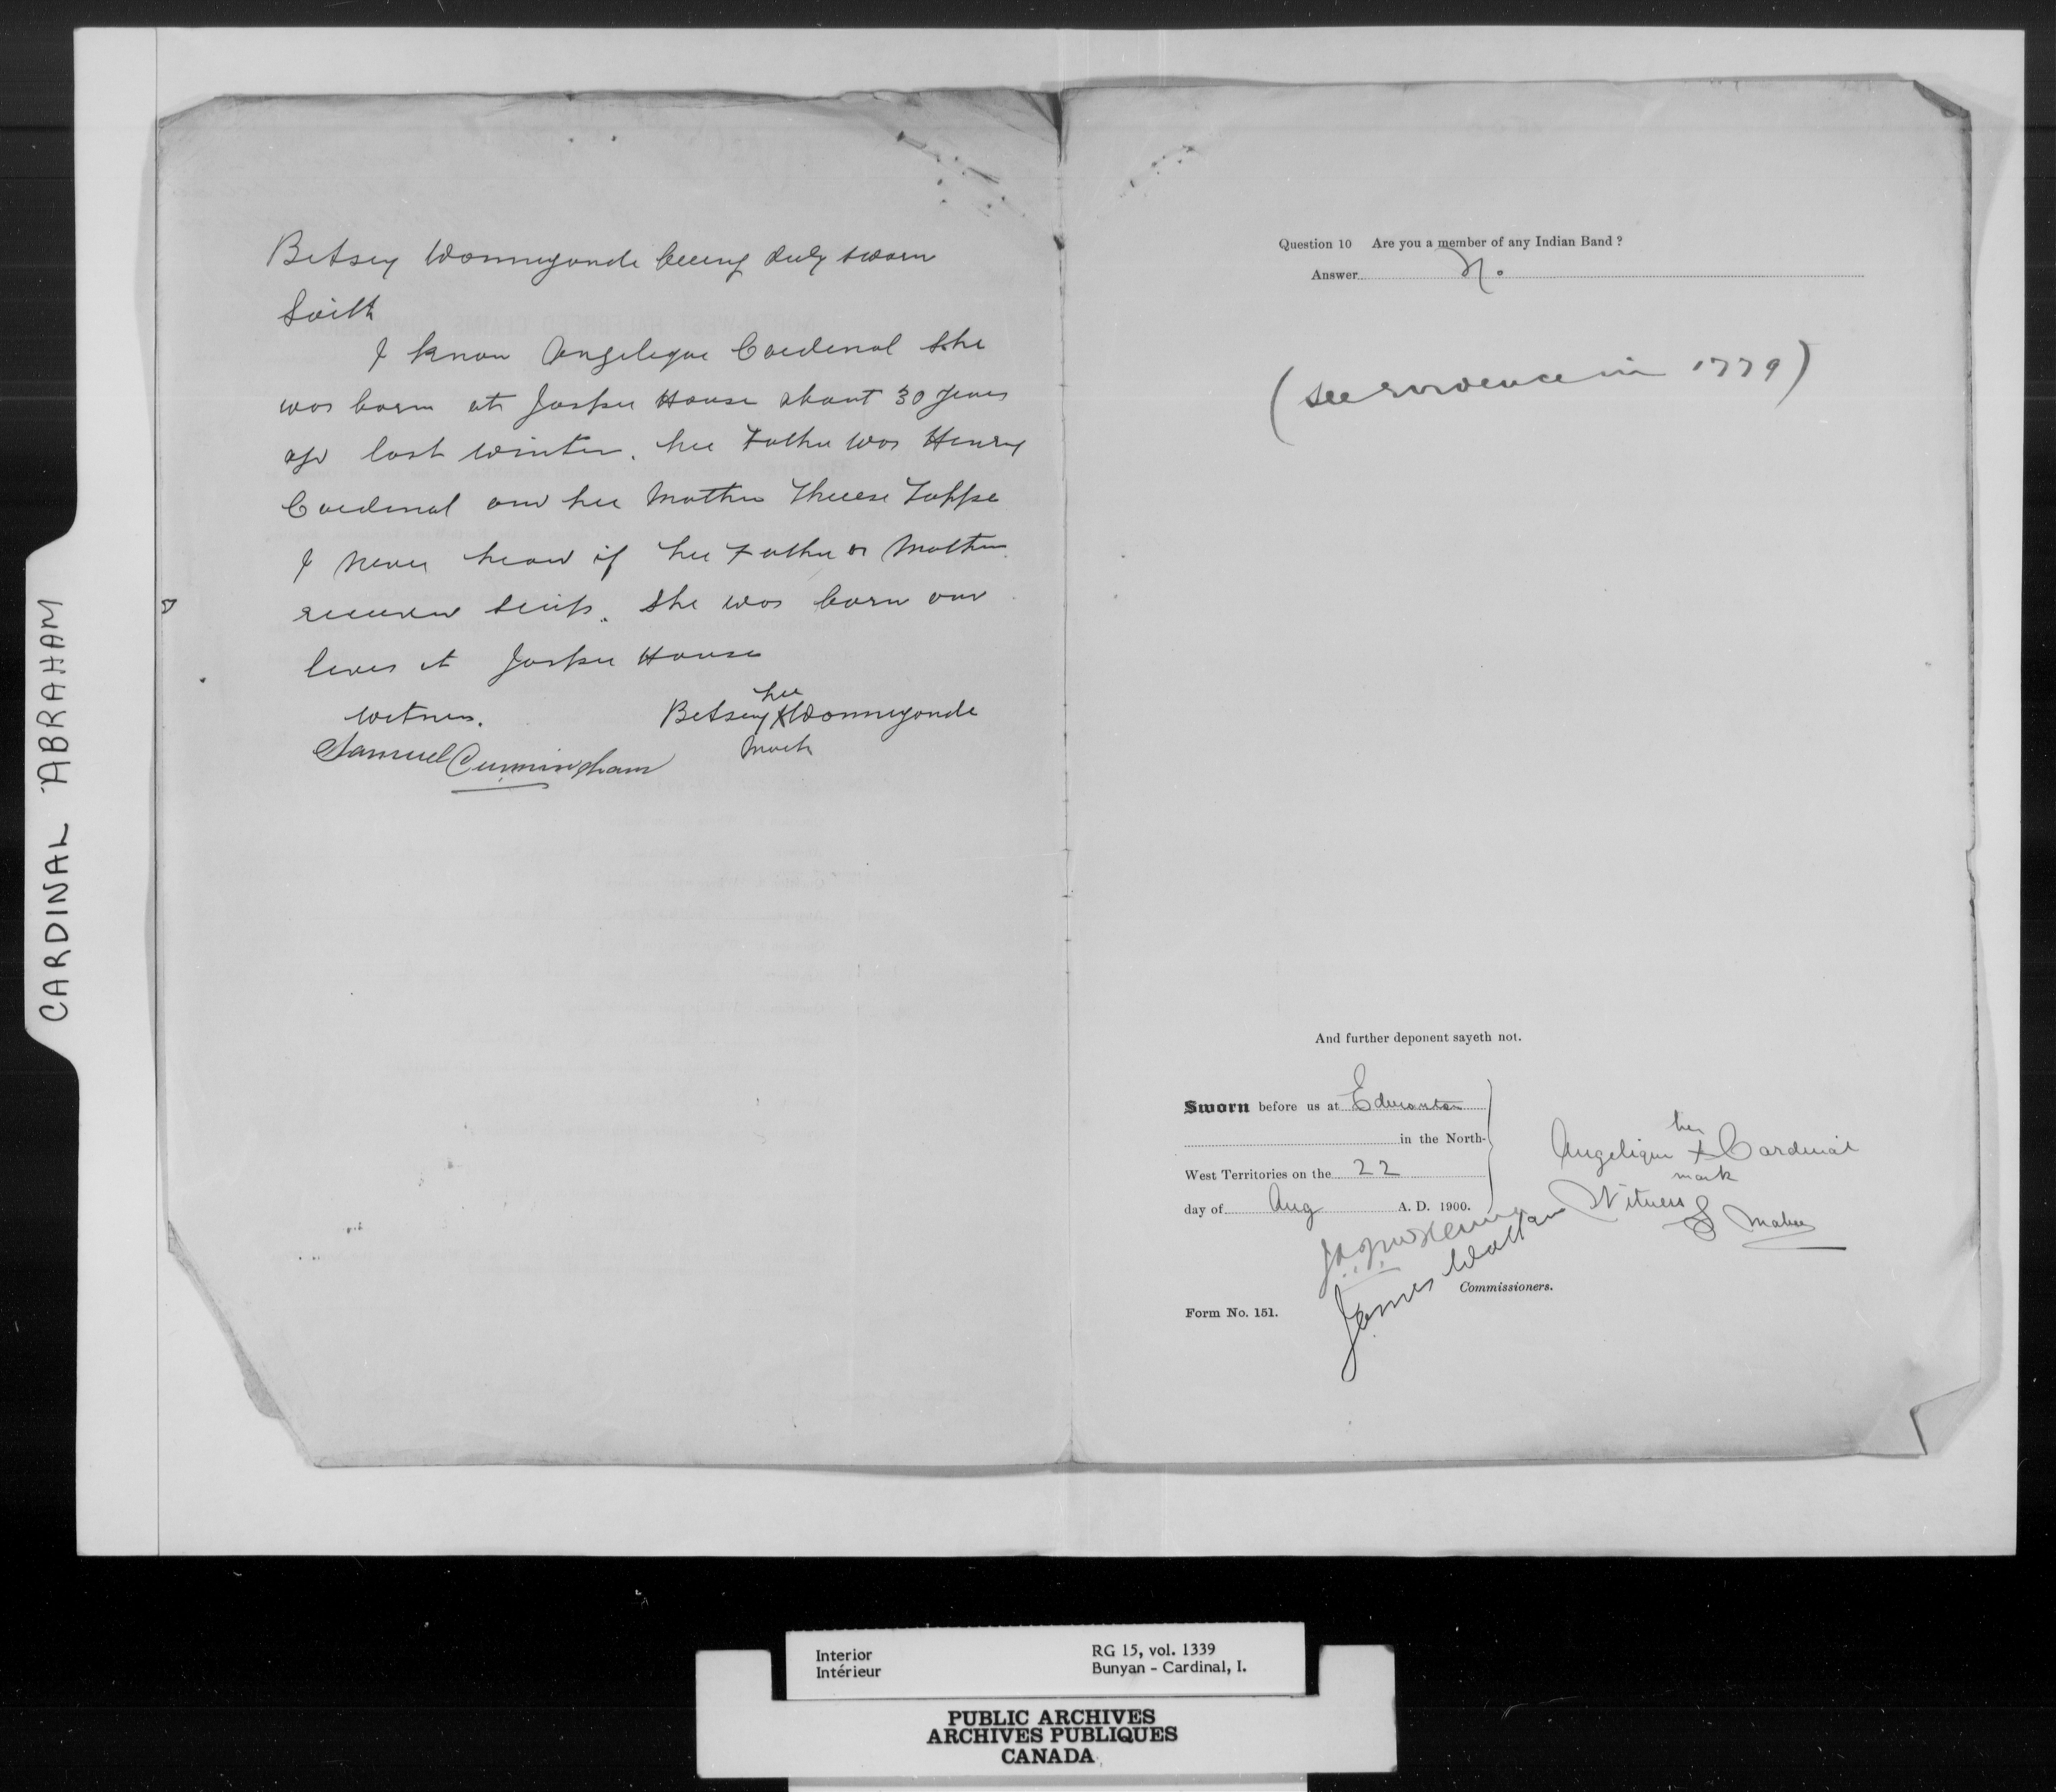 CARDINAL ABRAHAM
Betsey Wanneyonde being duly sworn
Saith
I know Angelique Cardinal she
was born at Jasper House about 30 years
ago last winter. her Father was Henry
Cardinal and her Mother Therese
I never heard if her Father or Mother
received scrip. She was born and
lives at Jasper House
witness. Betsey her X Wanneyonde
mark
Samuel Cunningham
Question 10 Are you a member of any Indian Band ?
Answer No.
(see evidence in 1779)
And further deponent sayeth not.
Sworn before us at Edmonton
in the North-
West Territories on the 22
day of Aug A. D. 1900.
Angelique her X Cardinal
mark
Witness
James Walker
Commissioners.
Form No. 151.
Interior
Intérieur
RG 15, vol. 1339
Bunyan - Cardinal, I.
PUBLIC ARCHIVES
ARCHIVES PUBLIQUES
CANADA